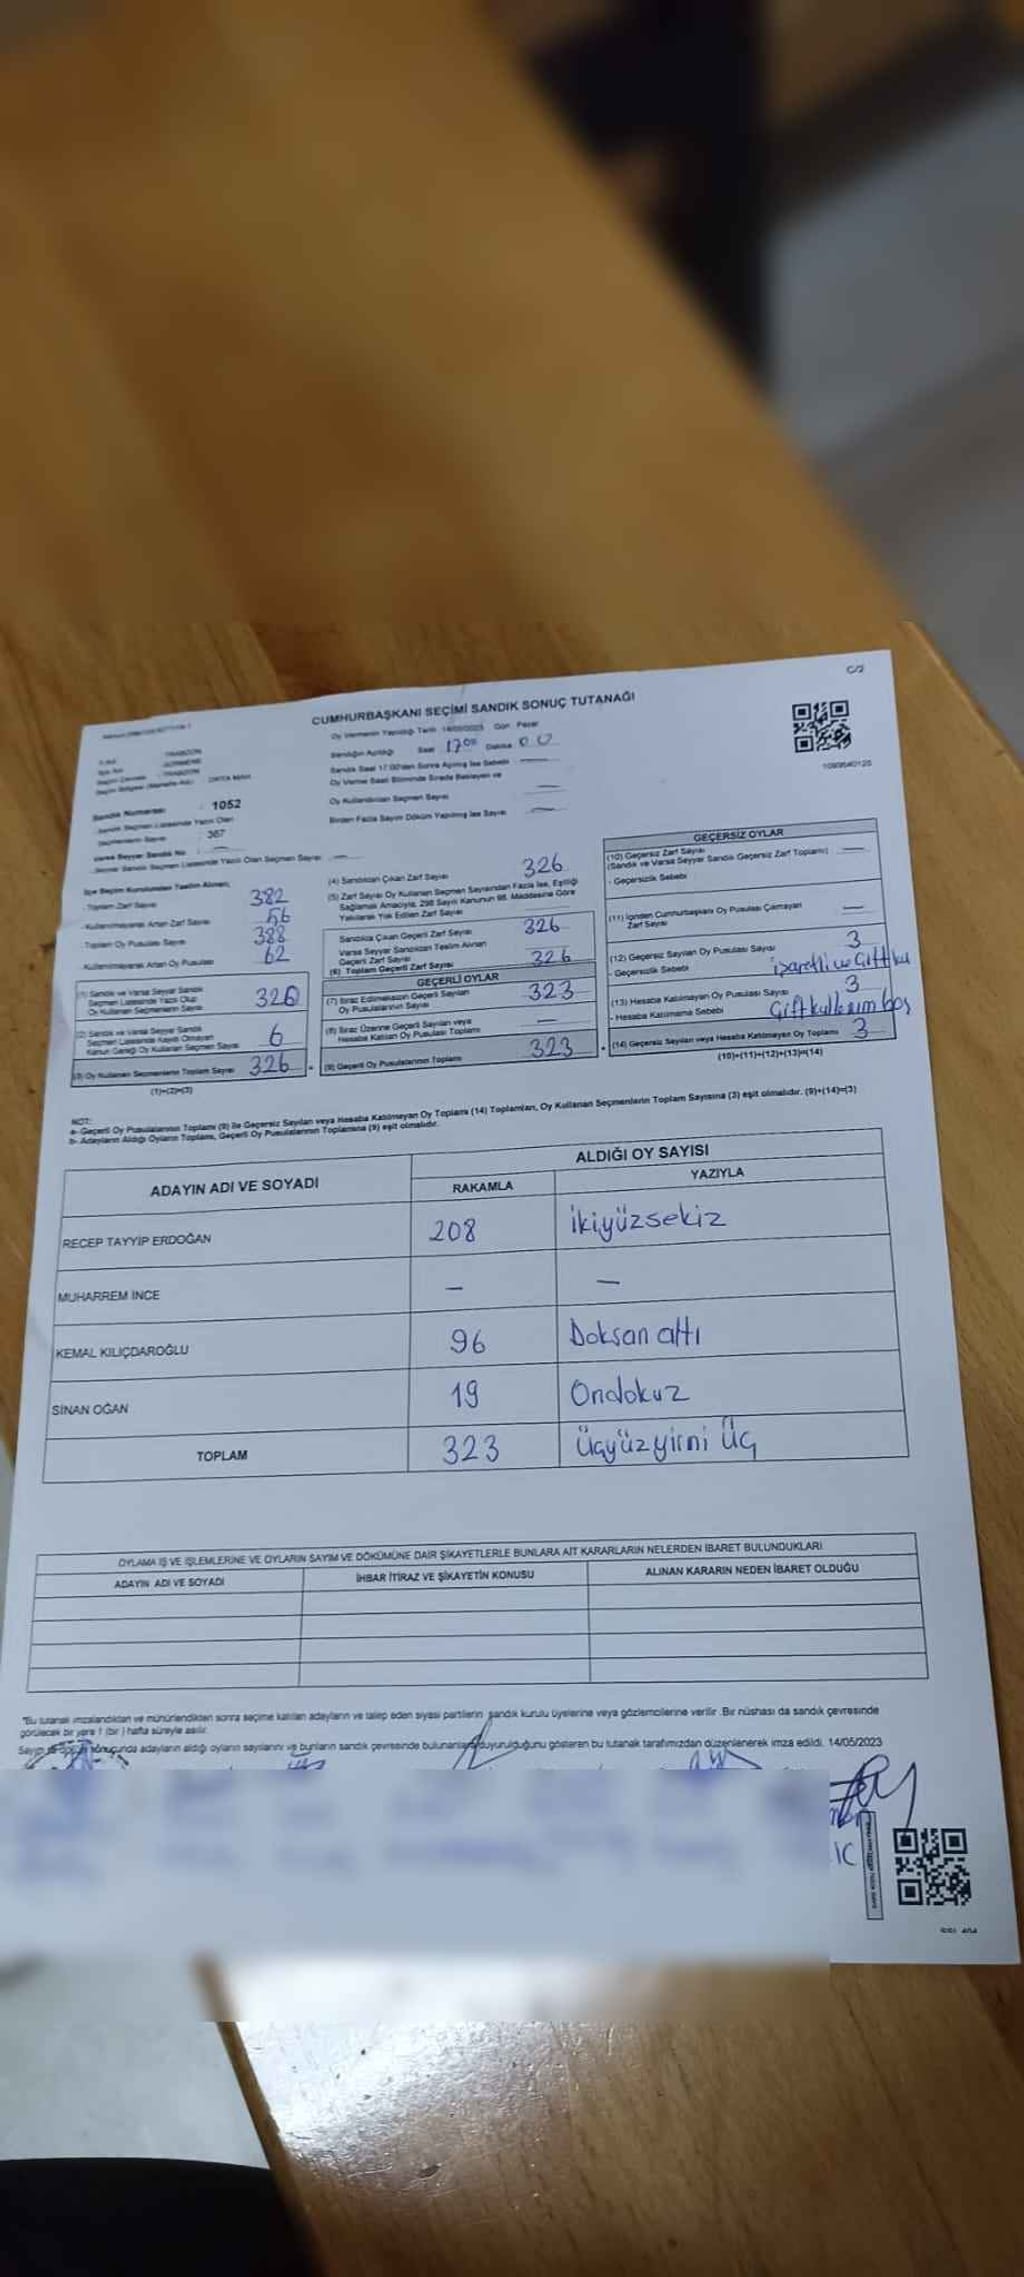 C/2
CUMHURBAŞKANI SEÇİMİ SANDIK SONUÇ TUTANAĞI
Oy Vermenin Yapıldığı Tarih 14/05/2023 Gün Pazar
Sandığın Açıldığı Saat 17:00 Dakika 00
Sandık Saat 17.00'den Sonra Açılmış İse Sebebi —
Oy Verme Saati Bitiminde Sırada Bekleyen ve
Oy Kullandırılan Seçmen Sayısı —
Birden Fazla Sayım Döküm Yapılmış İse Sayısı —
TRABZON
TRABZON
ORTA MAH.
Sandık Numarası : 1052
Sandık Seçmen Listesinde Yazılı Olan
Seçmenlerin Sayısı : 367
Varsa Seyyar Sandık No : —
Seyyar Sandık Seçmen Listesinde Yazılı Olan Seçmen Sayısı : —
İlçe Seçim Kurulundan Teslim Alınan;
Toplam Zarf Sayısı 382
Kullanılmayarak Artan Zarf Sayısı 56
Toplam Oy Pusulası Sayısı 388
Kullanılmayarak Artan Oy Pusulası 62
(1) Sandık ve Varsa Seyyar Sandık
Seçmen Listesinde Yazılı Olup
Oy Kullanan Seçmenlerin Sayısı 320
(2) Sandık ve Varsa Seyyar Sandık
Seçmen Listesinde Kayıtlı Olmayan
Kanun Gereği Oy Kullanan Seçmen Sayısı 6
(3) Oy Kullanan Seçmenlerin Toplam Sayısı 326
(1)+(2)=(3)
(4) Sandıktan Çıkan Zarf Sayısı 326
(5) Zarf Sayısı Oy Kullanan Seçmen Sayısından Fazla İse, Eşitliği
Sağlamak Amacıyla, 298 Sayılı Kanunun 98. Maddesine Göre
Yakılarak Yok Edilen Zarf Sayısı
Sandıkta Çıkan Geçerli Zarf Sayısı 326
Varsa Seyyar Sandıktan Teslim Alınan
Geçerli Zarf Sayısı —
(6) Toplam Geçerli Zarf Sayısı 326
GEÇERLİ OYLAR
(7) İtiraz Edilmeksizin Geçerli Sayılan
Oy Pusulalarının Sayısı 323
(8) İtiraz Üzerine Geçerli Sayılan veya
Hesaba Katılan Oy Pusulası Toplamı —
(9) Geçerli Oy Pusulalarının Toplamı 323
GEÇERSİZ OYLAR
(10) Geçersiz Zarf Sayısı
(Sandık ve Varsa Seyyar Sandık Geçersiz Zarf Toplamı) —
- Geçersizlik Sebebi
(11) İçinden Cumhurbaşkanı Oy Pusulası Çıkmayan
Zarf Sayısı —
(12) Geçersiz Sayılan Oy Pusulası Sayısı 3
- Geçersizlik Sebebi
(13) Hesaba Katılmayan Oy Pusulası Sayısı 3
- Hesaba Katılmama Sebebi
(14) Geçersiz Sayılan veya Hesaba Katılmayan Oy Toplamı 3
(10)+(11)+(12)+(13)=(14)
NOT:
a- Geçerli Oy Pusulalarının Toplamı (9) ile Geçersiz Sayılan veya Hesaba Katılmayan Oy Toplamı (14) Toplamları, Oy Kullanan Seçmenlerin Toplam Sayısına (3) eşit olmalıdır. (9)+(14)=(3)
b- Adayların Aldığı Oyların Toplamı, Geçerli Oy Pusulalarının Toplamına (9) eşit olmalıdır.
ADAYIN ADI VE SOYADI
ALDIĞI OY SAYISI
RAKAMLA YAZIYLA
RECEP TAYYİP ERDOĞAN 208 ikiyüzsekiz
MUHARREM İNCE — —
KEMAL KILIÇDAROĞLU 96 Doksan altı
SİNAN OĞAN 19 Ondokuz
TOPLAM 323 Üçyüzyirmi Üç
OYLAMA İŞ VE İŞLEMLERİNE VE OYLARIN SAYIM VE DÖKÜMÜNE DAİR ŞİKAYETLERLE BUNLARA AİT KARARLARIN NELERDEN İBARET BULUNDUKLARI
ADAYIN ADI VE SOYADI İHBAR İTİRAZ VE ŞİKAYETİN KONUSU ALINAN KARARIN NEDEN İBARET OLDUĞU
"Bu tutanak imzalandıktan ve mühürlendikten sonra seçime katılan adayların ve talep eden siyasi partilerin sandık kurulu üyelerine veya gözlemcilerine verilir. Bir nüshası da sandık çevresinde
görülecek bir yere 1 (bir) hafta süreyle asılır.
Sayım ve döküm sonucunda adayların aldığı oyların sayılarını ve bunların sandık çevresinde bulunanlara duyurulduğunu gösteren bu tutanak tarafımızdan düzenlenerek imza edildi. 14/05/2023